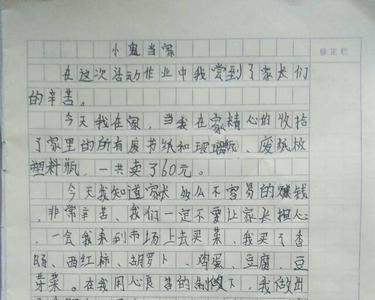 小鬼当家
在这次活动作业中我尝到了家长们
的辛苦。
今天我在家，当我在家精心的收拾
了家里的所有废书纸和玻璃瓶、废纸板
塑料瓶，一共卖了60元。
今天我知道家长多么不容易的赚钱
，非常辛苦、我们一定不要让家长担心
，一会我来到市场上去买菜，我买了香
肠、西红柿、胡萝卜、鸡蛋、豆腐、豆
芽菜。在我用心良苦的制做下，我做出